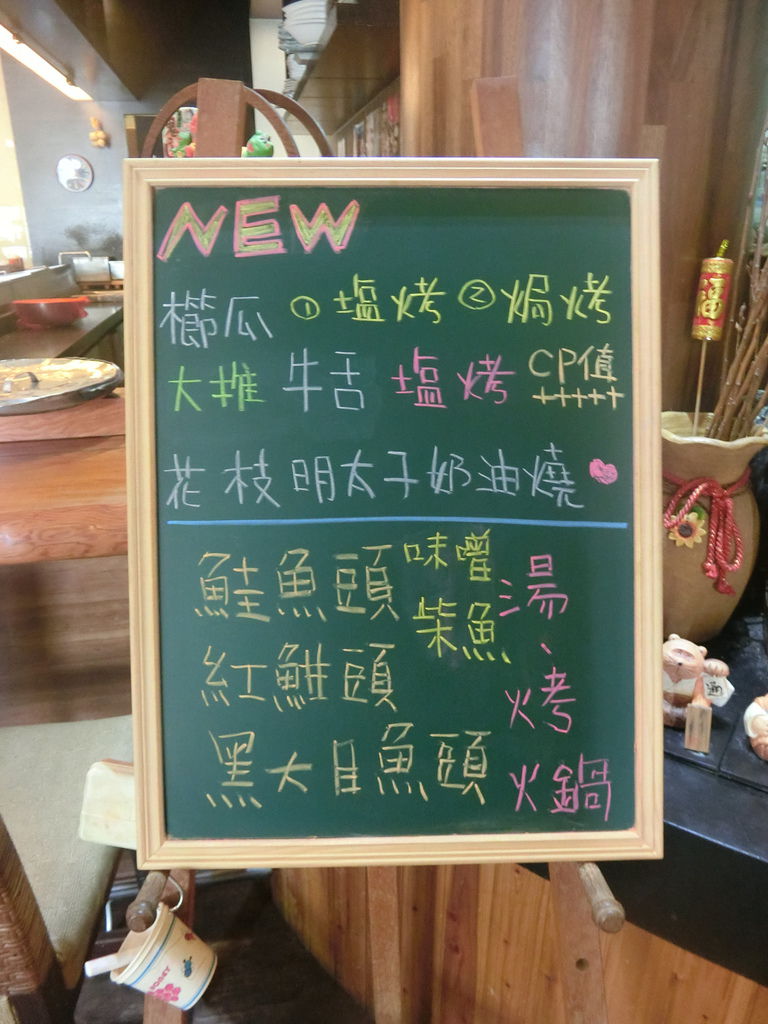 NEW
櫛瓜 ①塩烤 ②焗烤
大推 牛舌 塩烤 CP值
+++++
花枝明太子奶油燒
鮭魚頭 味噌 湯、
柴魚
紅魽頭 烤
黑大目魚頭 火鍋
福